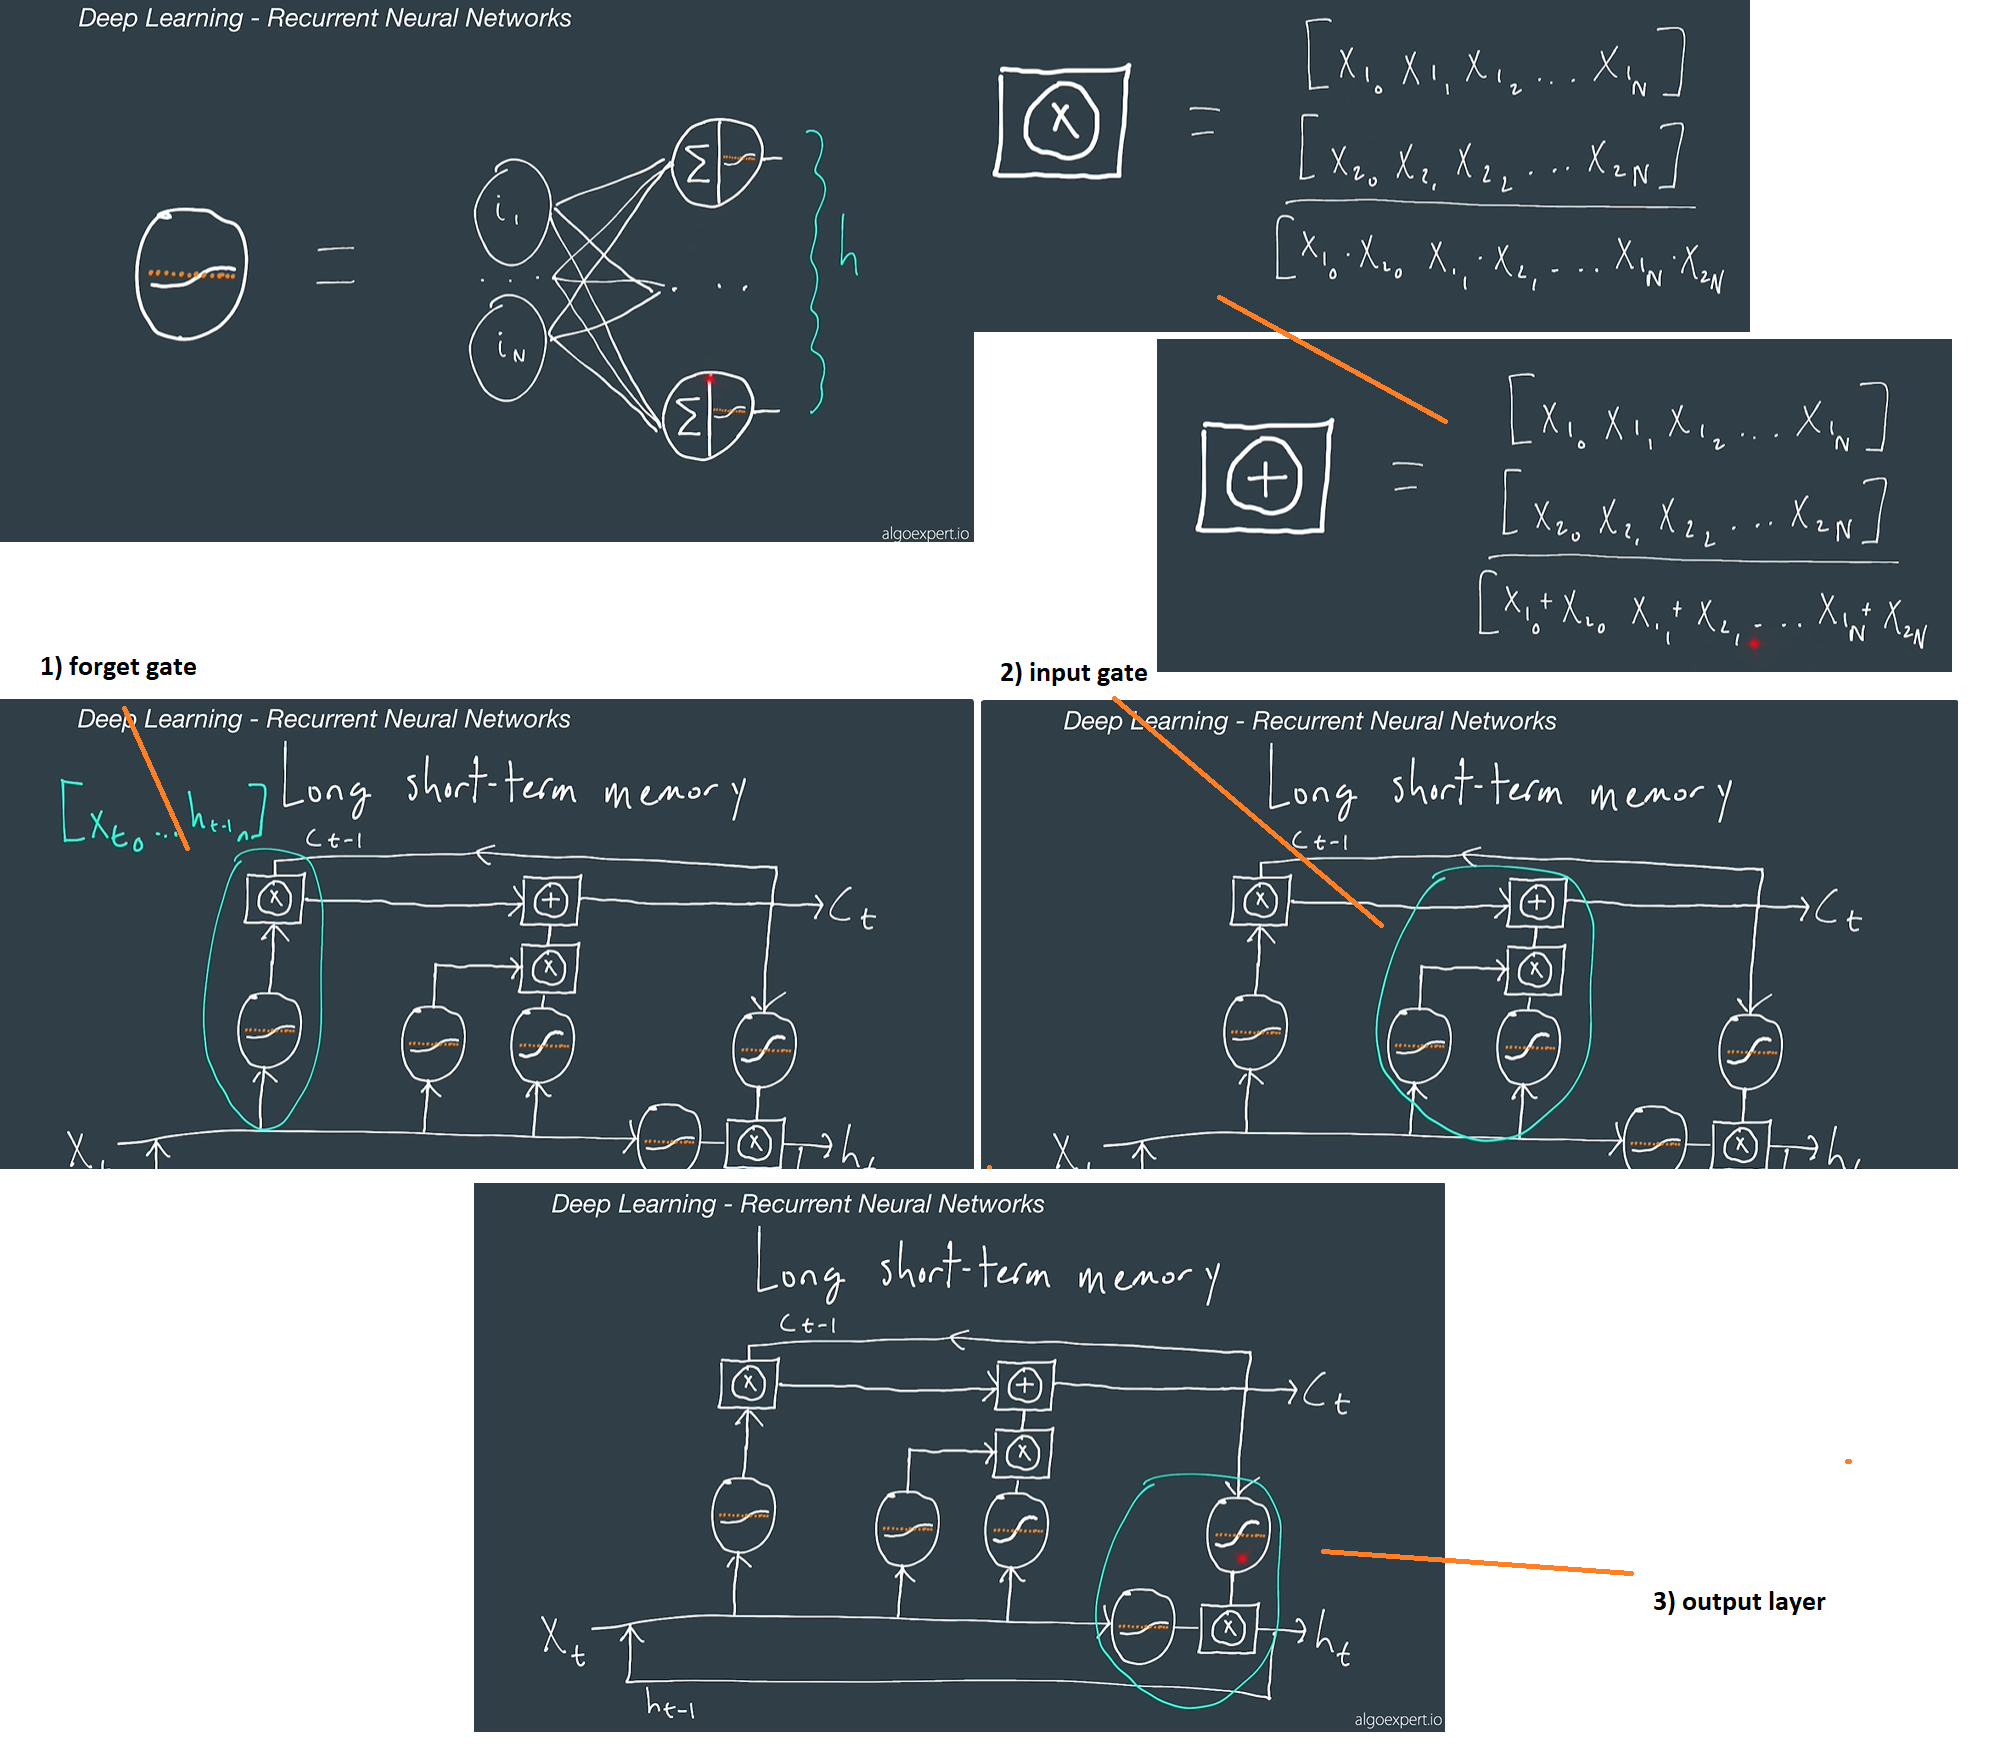 Deep Learning - Recurrent Neural Networks
=
i₁
. . .
iN
Σ
. . .
Σ
h
algoexpert.io
x = [X₁₀ X₁₁ X₁₂ ... X₁N]
[X₂₀ X₂₁ X₂₂ ... X₂N]
[X₁₀·X₂₀ X₁₁·X₂₁ ... X₁N·X₂N
+ = [X₁₀ X₁₁ X₁₂ ... X₁N]
[X₂₀ X₂₁ X₂₂ ... X₂N]
[X₁₀+X₂₀ X₁₁+X₂₁ ... X₁N+X₂N
1) forget gate
Deep Learning - Recurrent Neural Networks
Long short-term memory
[Xt₀ ... ht-1n]
Ct-1
x
+
Ct
x
X
x
ht
2) input gate
Deep Learning - Recurrent Neural Networks
Long short-term memory
Ct-1
x
+
Ct
x
X
x
h
Deep Learning - Recurrent Neural Networks
Long short-term memory
Ct-1
x
+
Ct
x
Xt
x
ht
ht-1
algoexpert.io
3) output layer